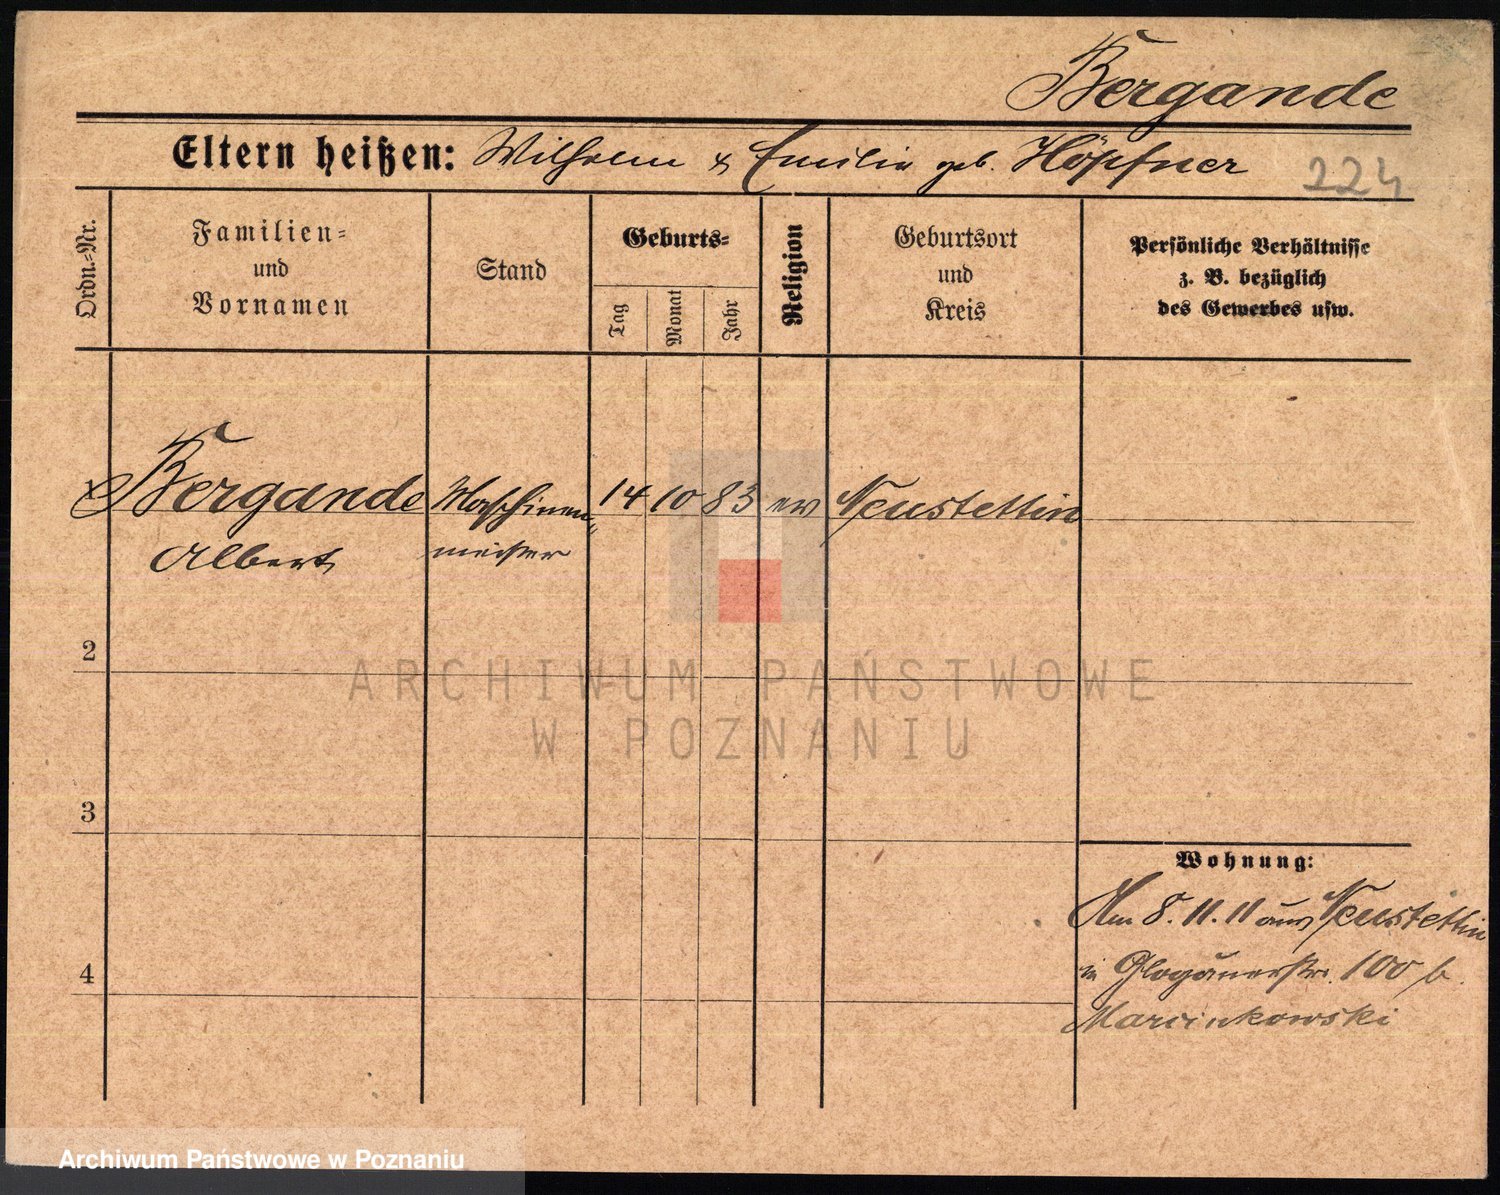 Bergande
Eltern heißen: Wilhelm & Emilie geb. Höpfner
224
Ordn.-Nr.
Familien-
und
Vornamen
Stand
Geburts-
Tag
Monat
Jahr
Religion
Geburtsort
und
Kreis
Persönliche Verhältnisse
z. B. bezüglich
des Gewerbes usw.
Bergande Maschinen- 14 10 83 ev Neustettin
Albert meister
2
3
4
Wohnung:
Am 8.11.11 aus Neustettin
in Glogauerstr. 100 b.
Marcinkowski
ARCHIWUM PAŃSTWOWE
W POZNANIU
Archiwum Państwowe w Poznaniu